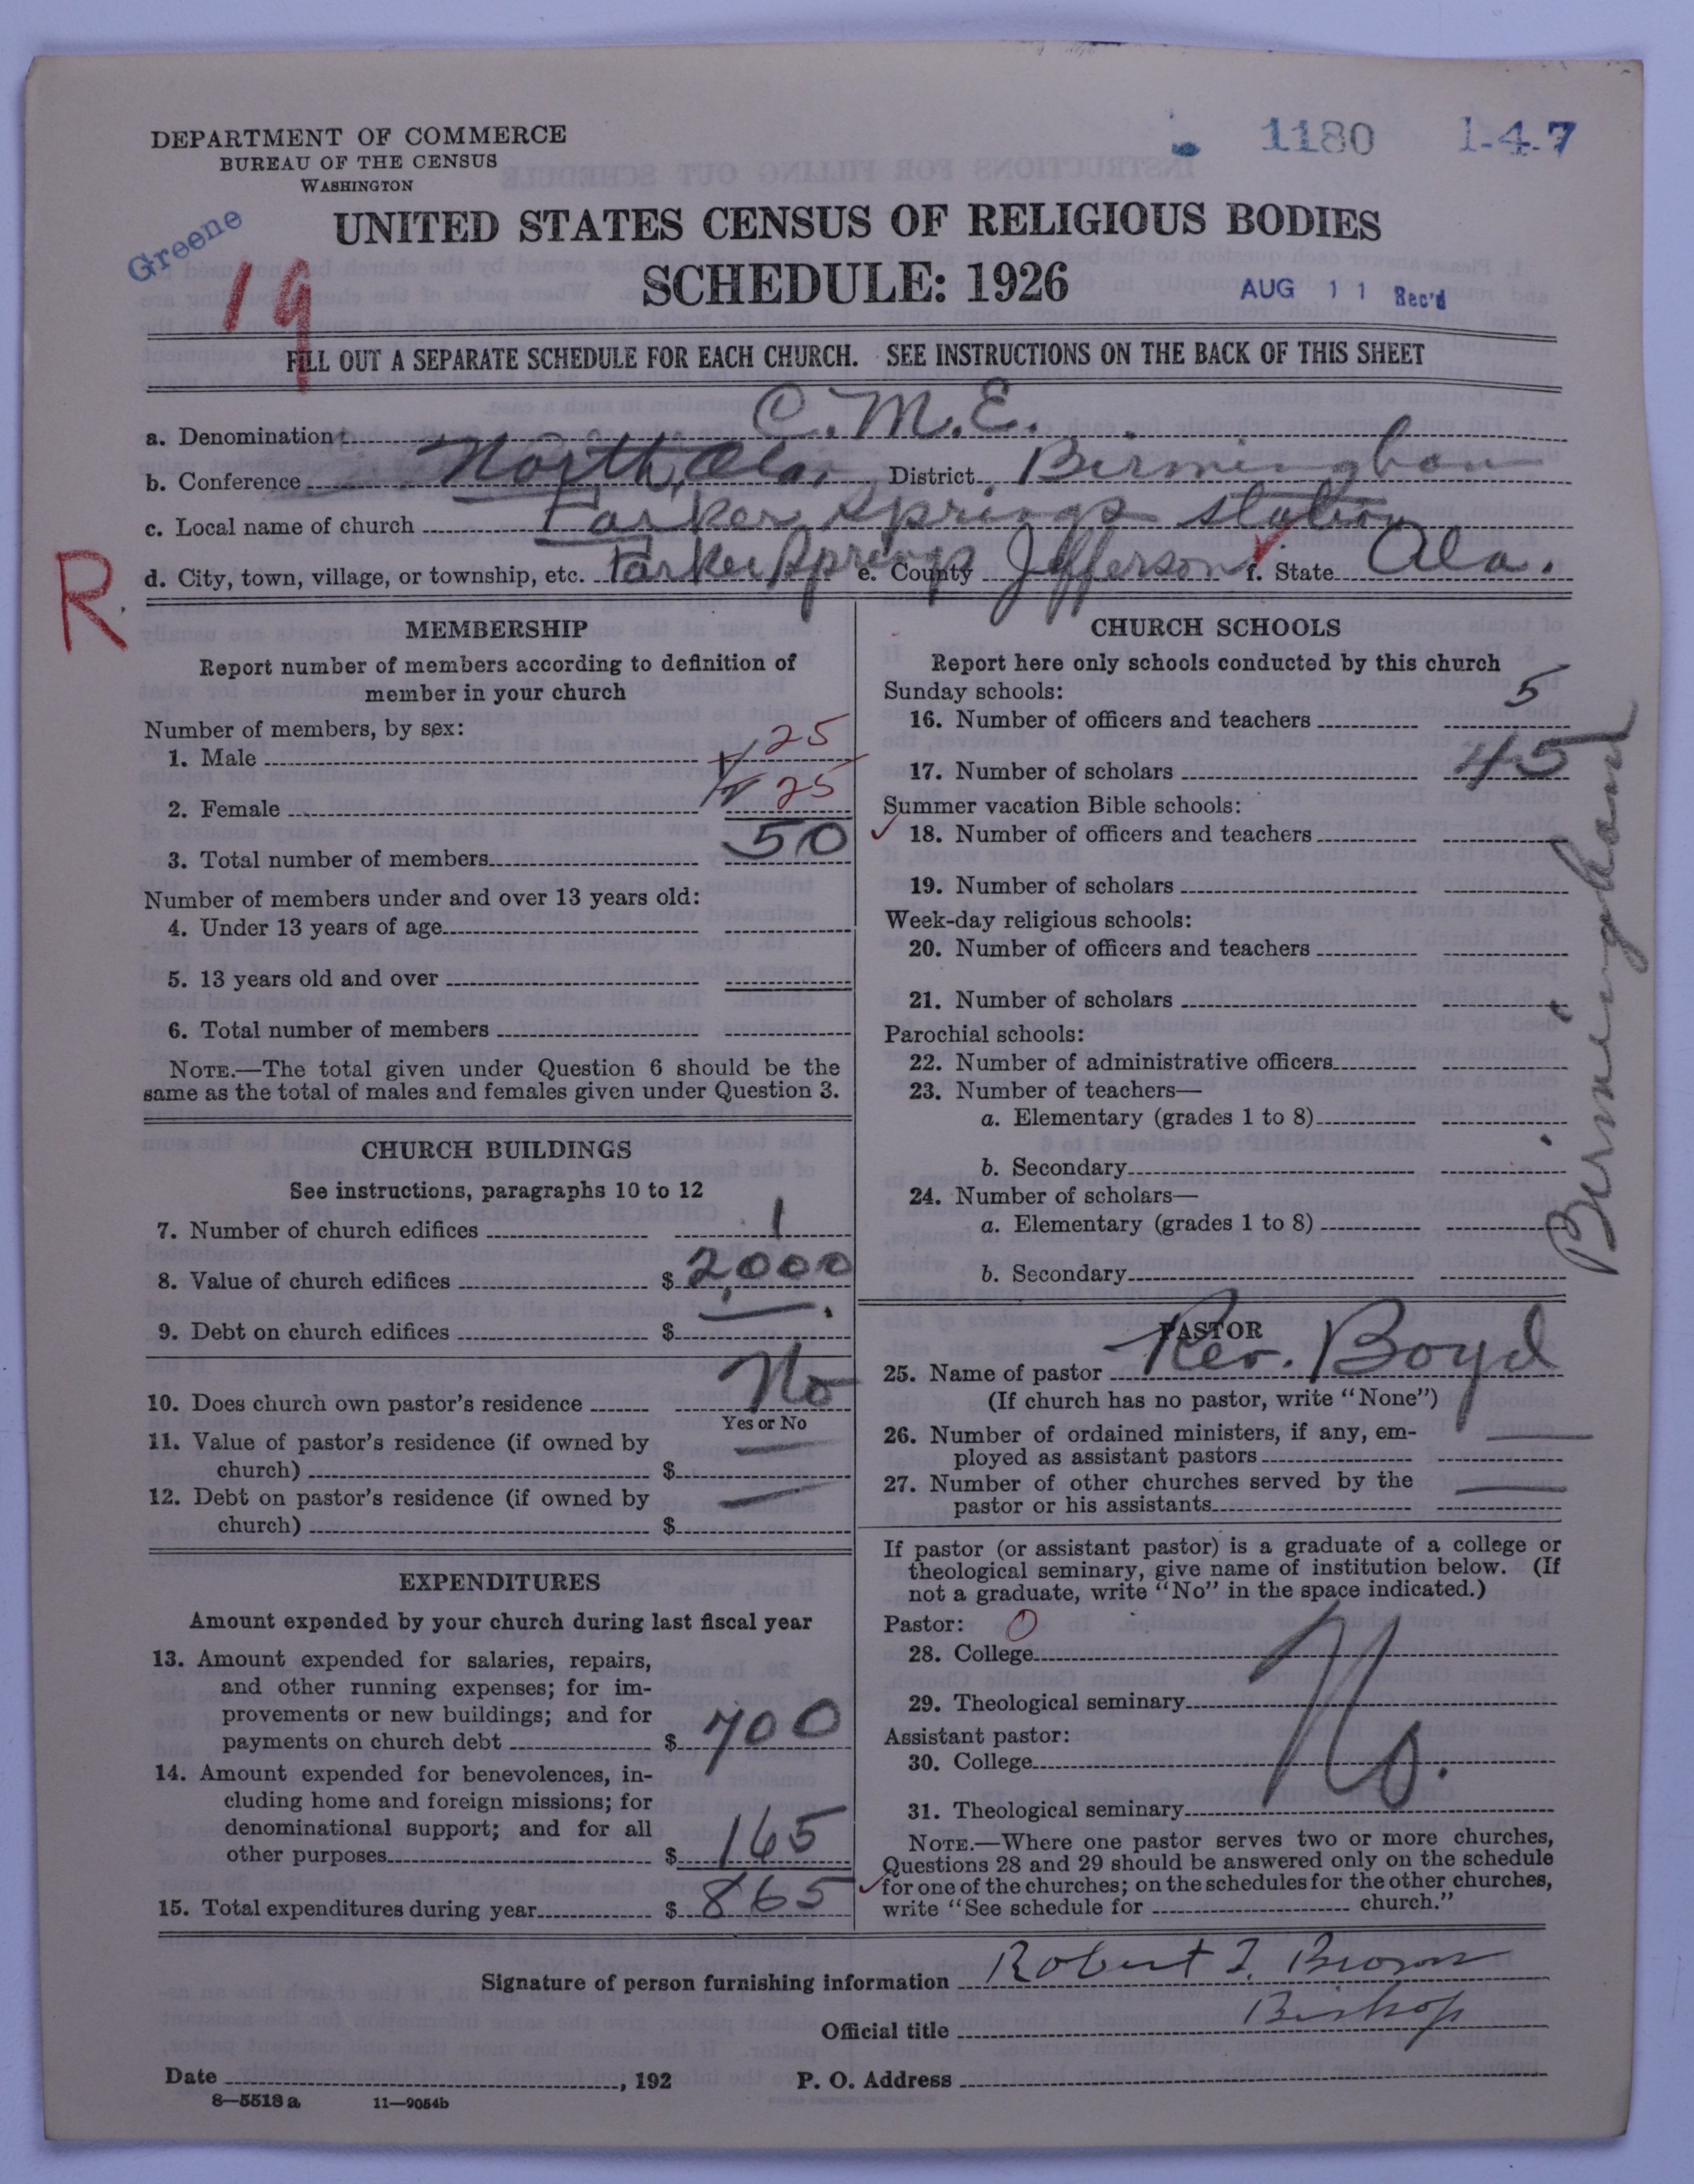 DEPARTMENT OF COMMERCE
BUREAU OF THE CENSUS
WASHINGTON
1180 1-4-7
Greene
19
UNITED STATES CENSUS OF RELIGIOUS BODIES
SCHEDULE: 1926
AUG 11 Rec'd
FILL OUT A SEPARATE SCHEDULE FOR EACH CHURCH. SEE INSTRUCTIONS ON THE BACK OF THIS SHEET
a. Denomination C.M.E.
b. Conference North Ala. District Birmingham
c. Local name of church Parker Springs Station
d. City, town, village, or township, etc. Parker Springs e. County Jefferson f. State Ala.
R
MEMBERSHIP
Report number of members according to definition of
member in your church
Number of members, by sex:
1. Male 25
2. Female 25
3. Total number of members 50
Number of members under and over 13 years old:
4. Under 13 years of age
5. 13 years old and over
6. Total number of members
NOTE.—The total given under Question 6 should be the
same as the total of males and females given under Question 3.
CHURCH BUILDINGS
See instructions, paragraphs 10 to 12
7. Number of church edifices 1
8. Value of church edifices $ 2,000
9. Debt on church edifices $
10. Does church own pastor's residence No
Yes or No
11. Value of pastor's residence (if owned by
church) $ —
12. Debt on pastor's residence (if owned by
church) $ —
EXPENDITURES
Amount expended by your church during last fiscal year
13. Amount expended for salaries, repairs,
and other running expenses; for im-
provements or new buildings; and for
payments on church debt $ 700
14. Amount expended for benevolences, in-
cluding home and foreign missions; for
denominational support; and for all
other purposes $ 165
15. Total expenditures during year $ 865
CHURCH SCHOOLS
Report here only schools conducted by this church
Sunday schools:
16. Number of officers and teachers 5
17. Number of scholars 45
Summer vacation Bible schools:
18. Number of officers and teachers
19. Number of scholars
Week-day religious schools:
20. Number of officers and teachers
21. Number of scholars
Parochial schools:
22. Number of administrative officers
23. Number of teachers—
a. Elementary (grades 1 to 8)
b. Secondary
24. Number of scholars—
a. Elementary (grades 1 to 8)
b. Secondary
Birmingham
PASTOR
25. Name of pastor Rev. Boyd
(If church has no pastor, write "None")
26. Number of ordained ministers, if any, em-
ployed as assistant pastors —
27. Number of other churches served by the
pastor or his assistants —
If pastor (or assistant pastor) is a graduate of a college or
theological seminary, give name of institution below. (If
not a graduate, write "No" in the space indicated.)
Pastor: 0
28. College
29. Theological seminary
No.
Assistant pastor:
30. College
31. Theological seminary
NOTE.—Where one pastor serves two or more churches,
Questions 28 and 29 should be answered only on the schedule
for one of the churches; on the schedules for the other churches,
write "See schedule for church."
Signature of person furnishing information Robert T. Brown
Official title Bishop
Date , 192 P. O. Address
8—5518 a 11—9054b